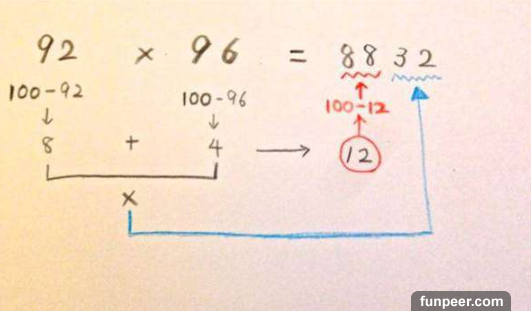 92 × 96 = 8832
100-92 100-96 100-12
8 + 4 → 12
×
funpeer.com